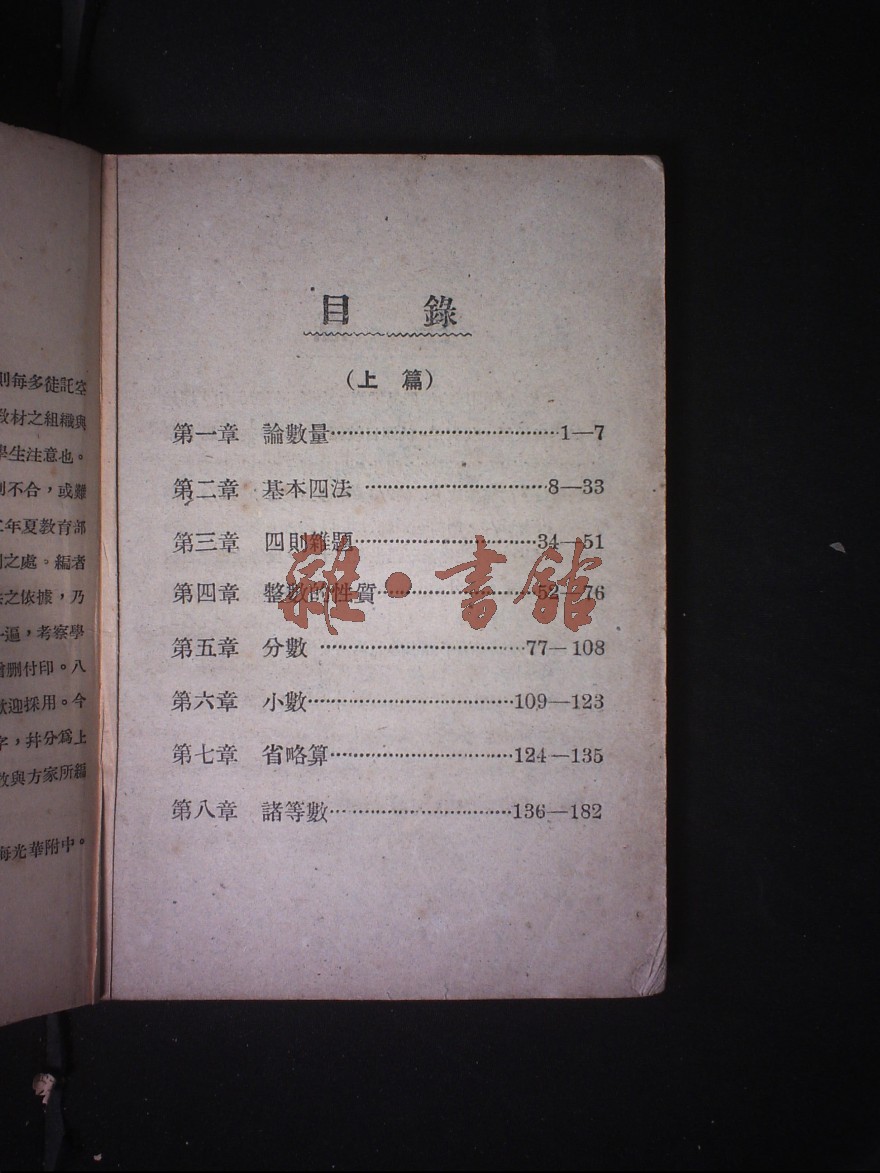 目錄
（上篇）
第一章 論數量……………………………1—7
第二章 基本四法……………………………8—33
第三章 四則雜題……………………………34—51
第四章 整數的性質……………………………52—76
第五章 分數……………………………77—108
第六章 小數……………………………109—123
第七章 省略算……………………………124—135
第八章 諸等數……………………………136—182
雜·書館
則每多徒託空
教材之組織與
學生注意也。
不合，或難
年夏教育部
之處。編者
之依據，乃
遍，考察學
刪付印。八
迎採用。今
字，幷分爲上
與方家所編
海光華附中。